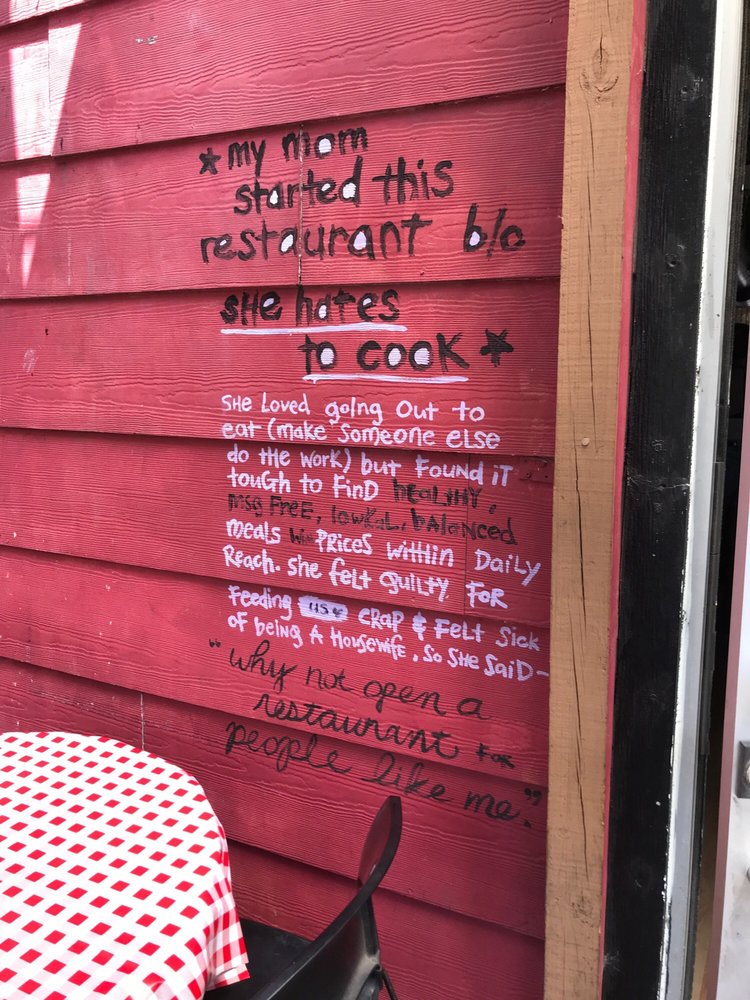 ★ my mom
started this
restaurant b/c
SHe hates
to cook ★
SHe Loved going Out to
eat (make Someone eLSe
do tHe work) but Found iT
touGh to FinD heaLtHY,
msg FreE, lowKaL, baLanced
meaLs w PRiceS witHin DaiLy
Reach. She feLt guiLty FoR
Feeding us CRaP & FeLt Sick
of being A HouSewiFe, So SHe SaiD-
"why not open a
restaurant FoR
people like me."